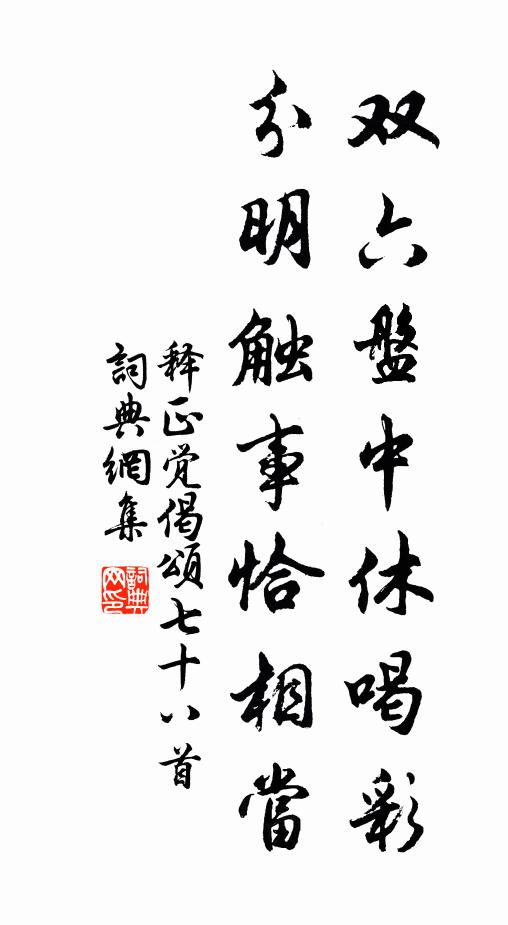 双六盤中休喝彩
分明触事恰相當
释正觉偈頌七十八首
詞典網集
詞典网印